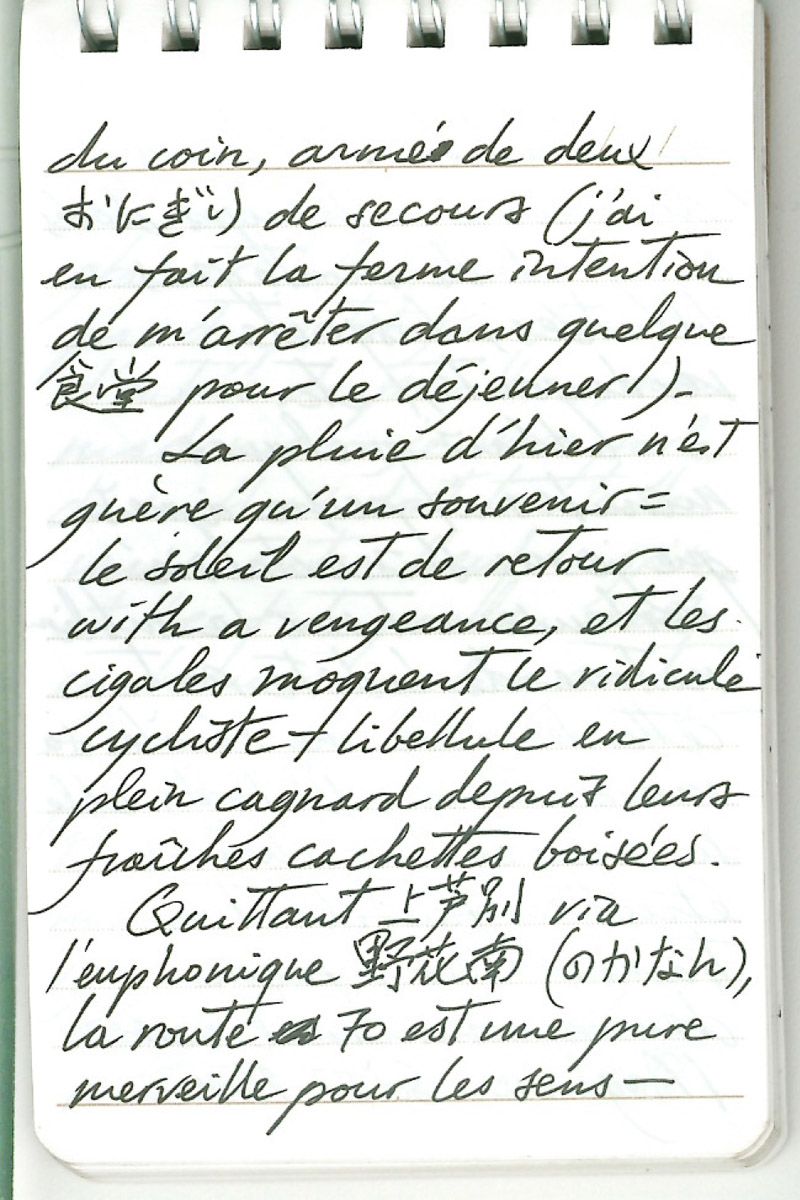 du coin, armé de deux
おにぎり de secours (j'ai
en fait la ferme intention
de m'arrêter dans quelque
食堂 pour le déjeuner!).
La pluie d'hier n'est
guère qu'un souvenir =
le soleil est de retour
with a vengeance, et les
cigales moquent le ridicule
cycliste + libellule en
plein cagnard depuis leurs
fraîches cachettes boisées.
Quittant 上芦別 via
l'euphonique 野花南 (のかなん),
la route 70 est une pure
merveille pour les sens —